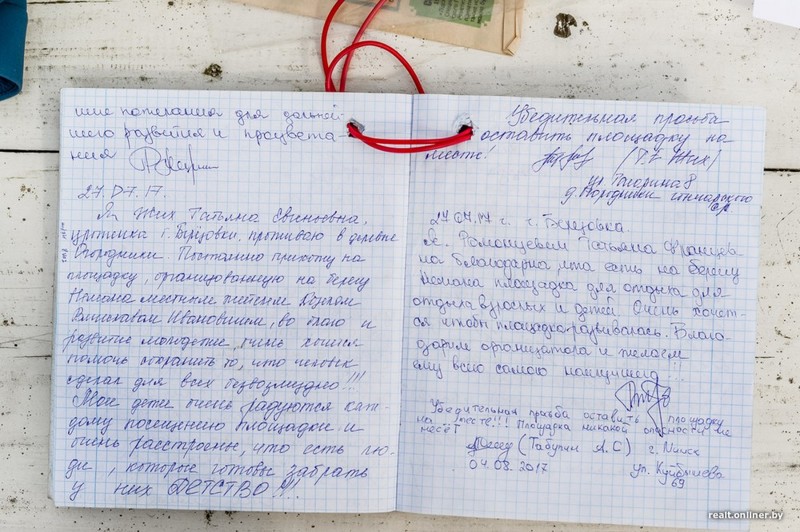 шие пожелания для дальней-
шего развития и процвета-
ния
27.07.17.
Я Жих Татьяна Евгеньевна,
уроженка г. Берёзовки, проживаю в деревне
Огородники. Постоянно прихожу на
площадку, организованную на берегу
Немана местным жителем
Ивановичем, во благо и
развитие молодежи, очень хочется
помочь сохранить то, что человек
сделал для всех безвозмездно!!!
Мои дети очень радуются каж-
дому посещению площадки и
очень расстроены, что есть лю-
ди, которые готовы забрать
у них ДЕТСТВО!!!
Убедительная просьба
оставить площадку на
месте! (Т.Е. Жих)
ул. Гагарина 8
д. Огородники
27.07.17 г. г. Берёзовка.
Я, Татьяна
на благодарна, что есть на берегу
Немана площадка для отдыха для
отдыха взрослых и детей. Очень хочет-
ся чтобы площадка развивалась. Благо-
дарим организатора и желаем
ему всего самого наилучшего!!!
Убедительная прозьба оставить площадку
на месте!!! Площадка никакой опасности не
несёт (Табулин А.С) г. Минск
04.08.2017 ул. Куйбышева
69
realt.onliner.by